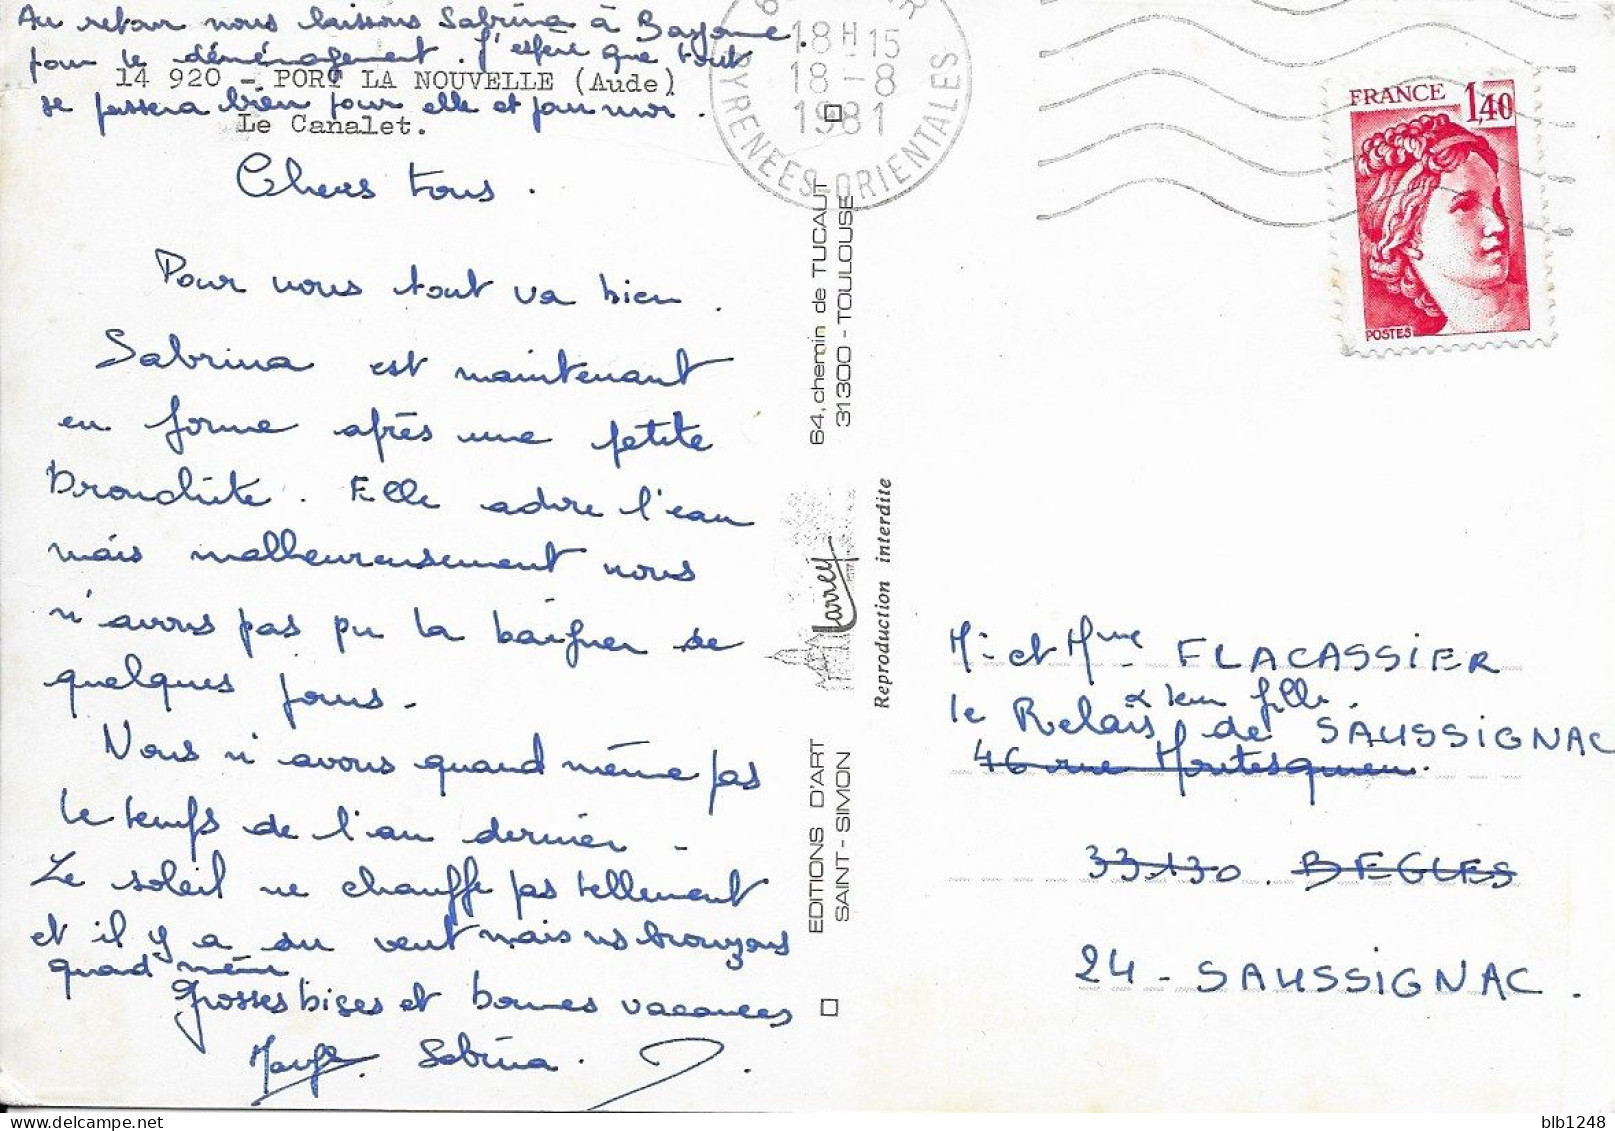 Au retour nous laissons Sabrina à Bayonne.
pour le déménagement. J'espère que tout
14 920 - PORT LA NOUVELLE (Aude)
se passera bien pour elle et pour moi.
Le Canalet.
Chers tous.
Pour nous tout va bien.
Sabrina est maintenant
en forme après une petite
bronchite. Elle adore l'eau
mais malheureusement nous
n'avons pas pu la baigner de
quelques jours.
Nous n'avons quand même pas
le temps de l'an dernier.
Le soleil ne chauffe pas tellement
et il y a du vent mais ns bronzons
quand même
Grosses bises et bonnes vacances
Sabrina.
18H15
18-8
1981
PYRENEES-ORIENTALES
FRANCE 1,40
POSTES
64, chemin de TUCAUT
31300 - TOULOUSE
Reproduction interdite
Larrey
EDITIONS D'ART
SAINT-SIMON
M. et Mme FLACASSIER
& leur fille.
le Relais de SAUSSIGNAC
46 rue Montesquieu.
33130. BEGLES
24 - SAUSSIGNAC.
blb1248